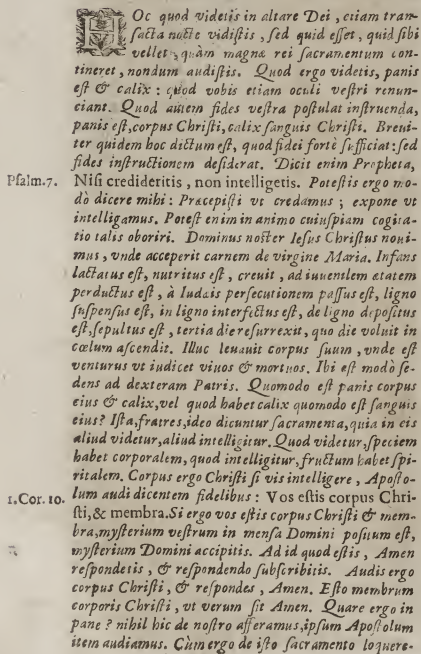 HOc quod videtis in altare Dei, etiam tran-
sacta nocte vidistis, sed quid esset, quid sibi
vellet, quàm magnæ rei sacramentum con-
tineret, nondum audistis. Quod ergo videtis, panis
est & calix: quod vobis etiam oculi vestri renun-
ciant. Quod autem fides vestra postulat instruenda,
panis est, corpus Christi, calix sanguis Christi. Breui-
ter quidem hoc dictum est, quod fidei fortè sufficiat: sed
fides instructionem desiderat. Dicit enim Propheta,
Psalm.7. Nisi credideritis, non intelligetis. Potestis ergo mo-
dò dicere mihi: Præcepisti vt credamus; expone vt
intelligamus. Potest enim in animo cuiuspiam cogita-
tio talis oboriri. Dominus noster Iesus Christus noui-
mus, vnde acceperit carnem de virgine Maria. Infans
lactatus est, nutritus est, creuit, ad iuuenilem ætatem
perductus est, à Iudæis persecutionem passus est, ligno
suspensus est, in ligno interfectus est, de ligno depositus
est, sepultus est, tertia die resurrexit, quo die voluit in
cœlum ascendit. Illuc leuauit corpus suum, vnde est
venturus vt iudicet viuos & mortuos. Ibi est modò se-
dens ad dexteram Patris. Quomodo est panis corpus
eius & calix, vel quod habet calix quomodo est sanguis
eius? Ista, fratres, ideo dicuntur sacramenta, quia in eis
aliud videtur, aliud intelligitur. Quod videtur, speciem
habet corporalem, quod intelligitur, fructum habet spi-
ritalem. Corpus ergo Christi si vis intelligere, Aposto-
1.Cor. 10. lum audi dicentem fidelibus: Vos estis corpus Chri-
sti, & membra. Si ergo vos estis corpus Christi & mem-
bra, mysterium vestrum in mensa Domini positum est,
mysterium Domini accipitis. Ad id quod estis, Amen
respondetis, & respondendo subscribitis. Audis ergo
corpus Christi, & respondes, Amen. Esto membrum
corporis Christi, vt verum sit Amen. Quare ergo in
pane? nihil hic de nostro afferamus, ipsum Apostolum
item audiamus. Cùm ergo de isto sacramento loquere-